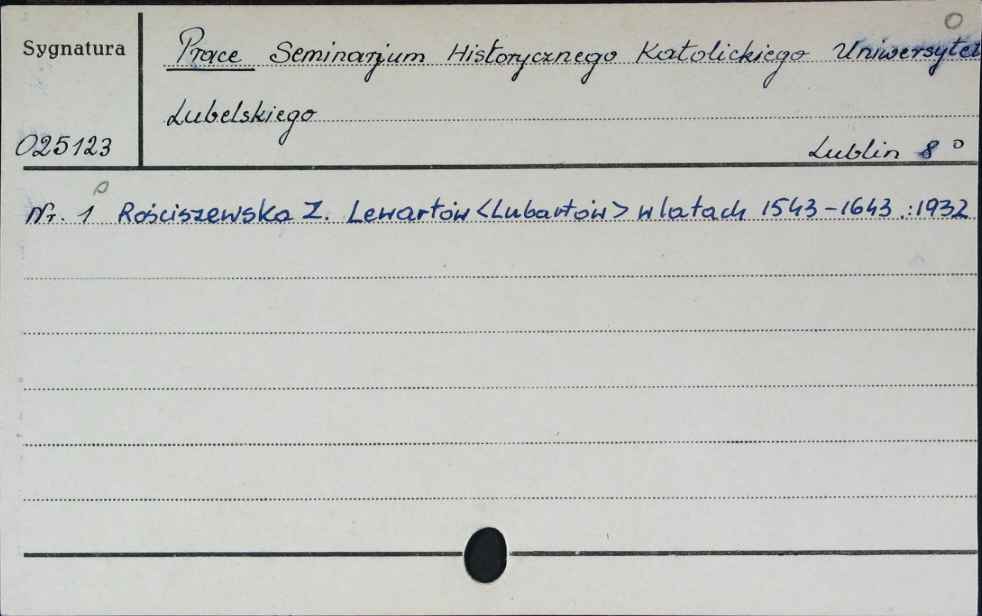 Sygnatura
Prace Seminarjum Historycznego Katolickiego Uniwersytet
Lubelskiego
025123
Lublin 8°
Nr. 1 Rościszewska Z. Lewartów <Lubartów> w latach 1543-1643 .:1932